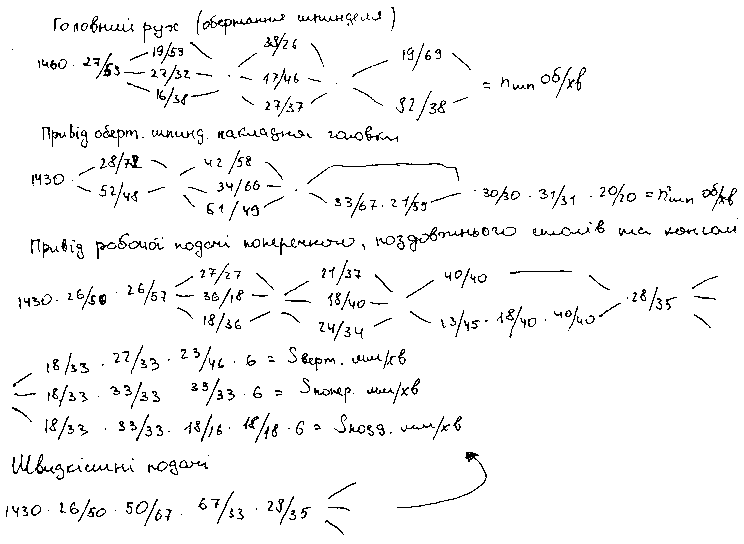 Головний рух (обертання шпинделя)
19/59 38/26 19/69
1460 · 27/53 27/32 · 17/46 · = nшп об/хв
16/38 27/37 82/38
Привід оберт. шпинд. накладная головки
28/72 42/58
1430 · 34/66 · · 30/30 · 31/31 · 20/20 = nшп об/хв
52/48 51/49 33/67 · 21/59
Привід робочої подачі поперечного, поздовжнього столів та консолі
27/27 21/37 40/40
1430 · 26/50 · 26/57 36/18 18/40 · 28/35
18/36 24/34 13/45 · 18/40 · 40/40
18/33 · 22/33 · 23/46 · 6 = Sверт. мм/хв
18/33 · 33/33 33/33 · 6 = Sпопер. мм/хв
18/33 · 33/33 · 18/16 · 18/18 · 6 = Sпозд. мм/хв
Швидкісні подачі
1430 · 26/50 · 50/67 · 67/33 · 28/35